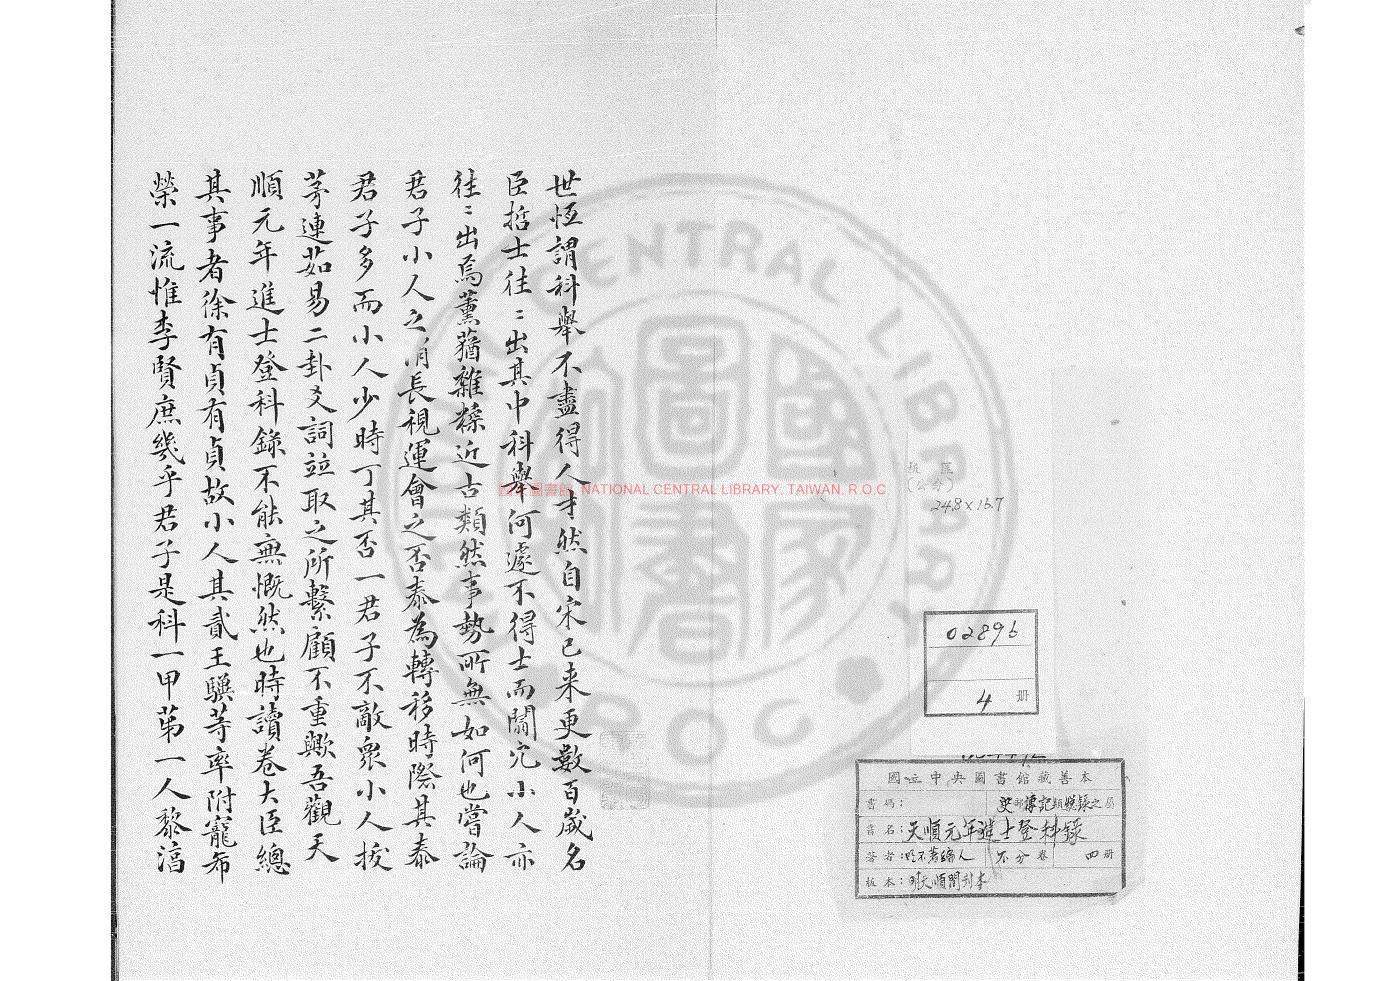 板 匡
(公分)
24.8×16.7
02896
4 册
國立中央圖書館藏善本
書碼： 史部傳記類總錄之屬
書名：天順元年進士登科錄
著者：明不著編人 不分卷 四册
版本：明天順間刊本
世恆謂科舉不盡得人才然自宋已来更數百歲名
臣哲士往〻出其中科舉何遽不得士而闒宂小人亦
往〻出焉薰蕕雜糅近古類然事勢所無如何也嘗論
君子小人之消長視運會之否泰為轉移時際其泰
君子多而小人少時丁其否一君子不敵衆小人拔
茅連茹易二卦爻詞竝取之所繫顧不重歟吾觀天
順元年進士登科錄不能無慨然也時讀卷大臣總
其事者徐有貞有貞故小人其貳王驥等率附寵希
榮一流惟李賢庶幾乎君子是科一甲苐一人黎淳
NATIONAL CENTRAL LIBRARY
R.O.C
國家圖書館
國家圖書館 NATIONAL CENTRAL LIBRARY, TAIWAN, R.O.C